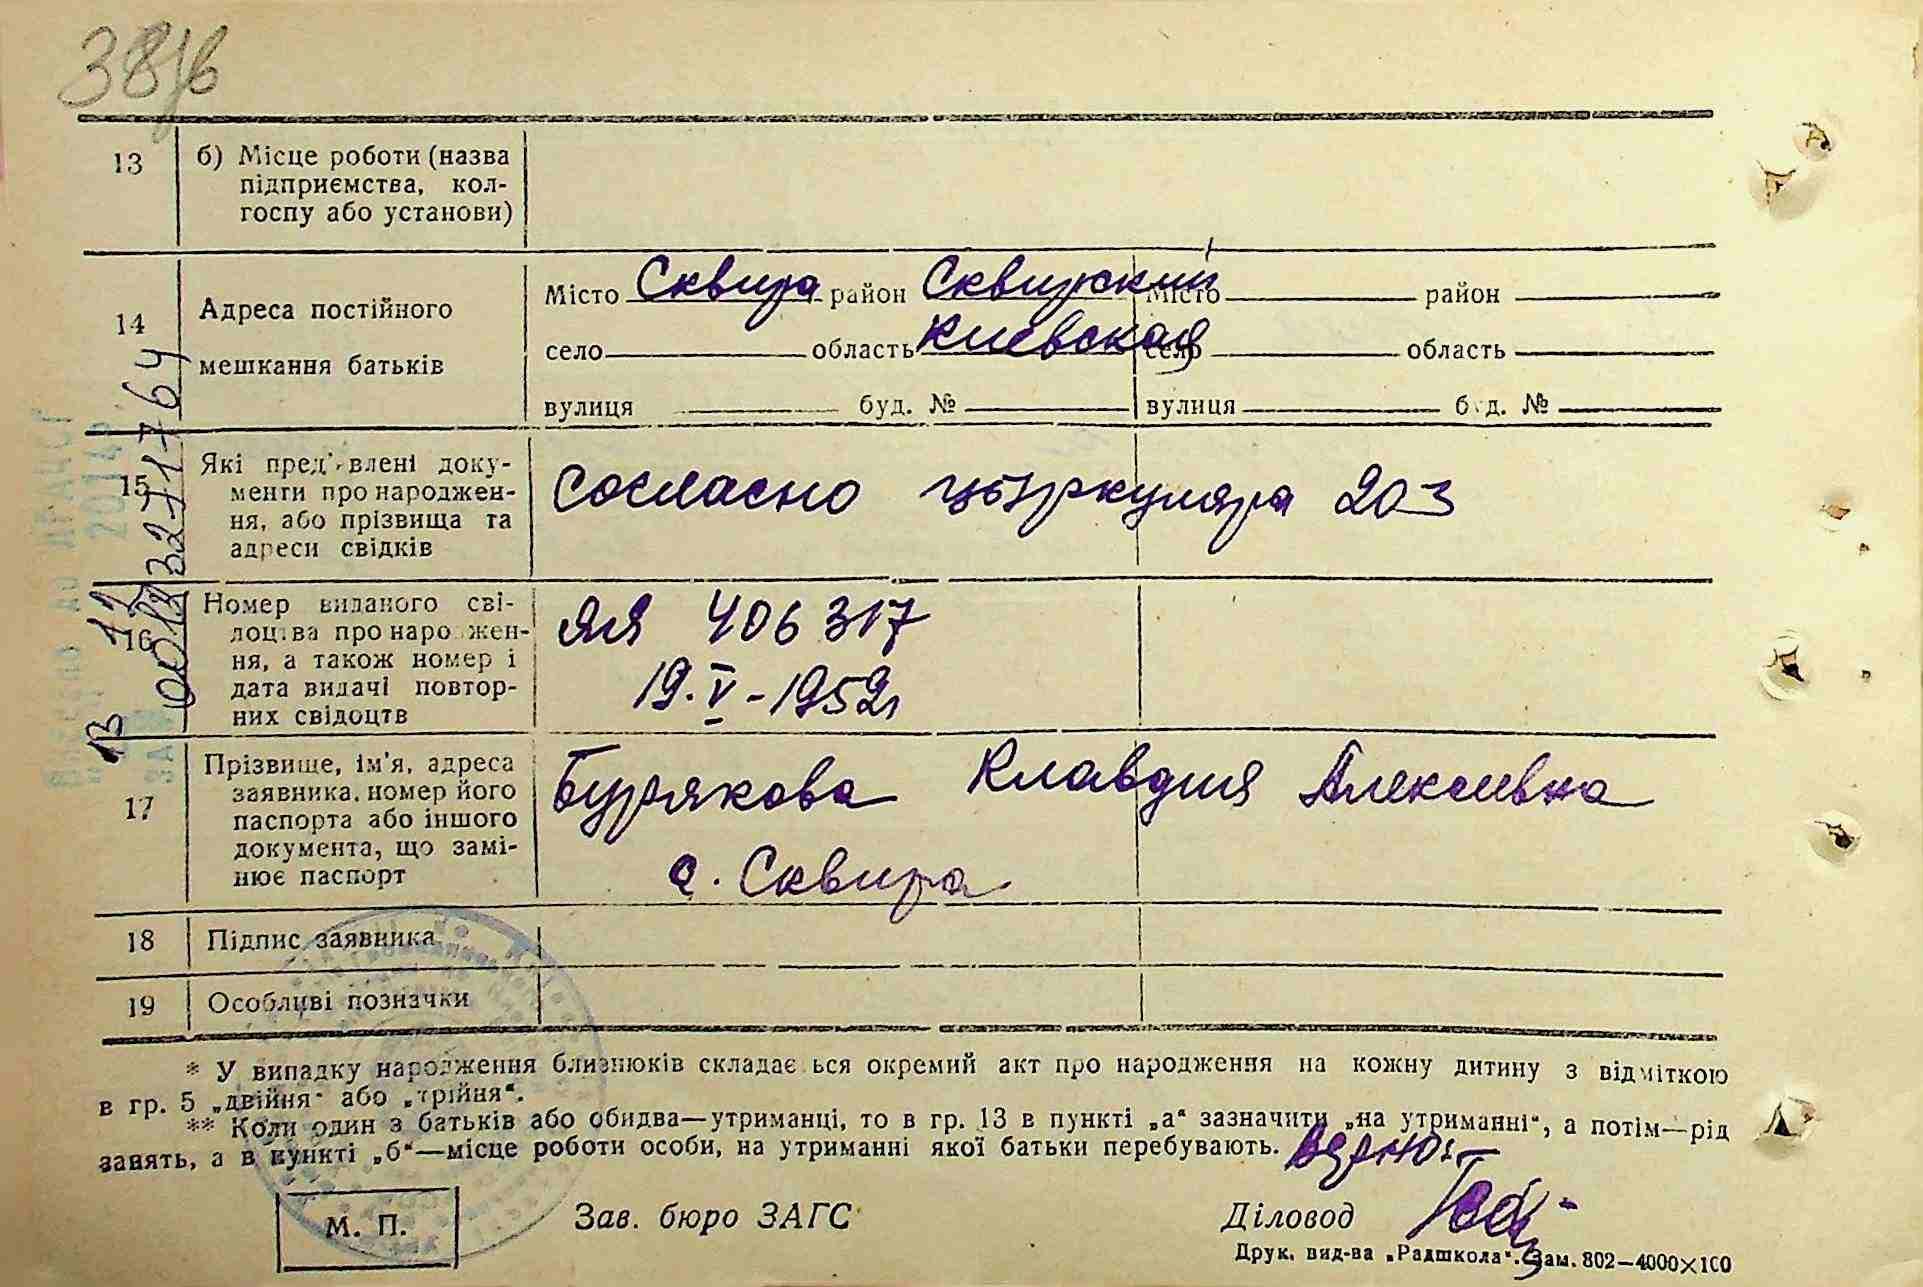 13 б) Місце роботи (назва
підприємства, кол-
госпу або установи)
14 Адреса постійного
мешкання батьків
Місто Сквира район Сквирский Місто район
село область Киевская село область
вулиця буд. № вулиця буд. №
15 Які пред'явлені доку-
менти про народжен-
ня, або прізвища та
адреси свідків
Согласно цыркуляра 203
16 Номер виданого сві-
доцтва про народжен-
ня, а також номер і
дата видачі повтор-
них свідоцтв
ЯЯ 406317
19.V-1952г
17 Прізвище, ім'я, адреса
заявника, номер його
паспорта або іншого
документа, що замі-
нює паспорт
Бурякова Клавдия Алексеевна
г. Сквира
18 Підпис заявника
19 Особливі позначки
* У випадку народження близнюків складається окремий акт про народження на кожну дитину з відміткою
в гр. 5 „двійня“ або „трійня“.
** Коли один з батьків або обидва—утриманці, то в гр. 13 в пункті „а“ зазначити „на утриманні“, а потім—рід
занять, а в пункті „б“—місце роботи особи, на утриманні якої батьки перебувають. Верно:
М. П. Зав. бюро ЗАГС Діловод
Друк. вид-ва „Радшкола“. Зам. 802—4000×100